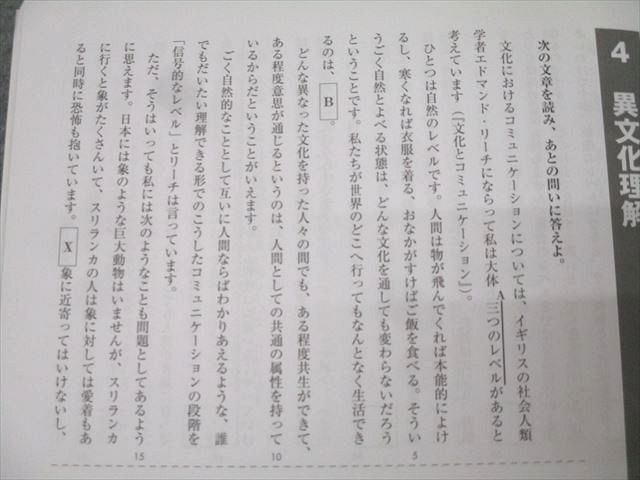 4 異文化理解
次の文章を読み、あとの問いに答えよ。
文化におけるコミュニケーションについては、イギリスの社会人類
学者エドマンド・リーチにならって私は大体A三つのレベルがあると
考えています（『文化とコミュニケーション』）。
ひとつは自然のレベルです。人間は物が飛んでくれば本能的によけ
るし、寒くなれば衣服を着る、おなかがすけばご飯を食べる。そうい
5
うごく自然とよべる状態は、どんな文化を通しても変わらないだろう
ということです。私たちが世界のどこへ行ってもなんとなく生活でき
るのは、B。
どんな異なった文化を持った人々の間でも、ある程度共生ができて、
ある程度意思が通じるというのは、人間としての共通の属性を持って
10
いるからだということがいえます。
ごく自然的なこととして互いに人間ならばわかりあえるような、誰
でもだいたい理解できる形でのこうしたコミュニケーションの段階を
「信号的なレベル」とリーチは言っています。
ただ、そうはいっても私には次のようなことも問題としてあるよう
に思えます。日本には象のような巨大動物はいませんが、スリランカ
15
に行くと象がたくさんいて、スリランカの人は象に対しては愛着もあ
ると同時に恐怖も抱いています。X象に近寄ってはいけないし、